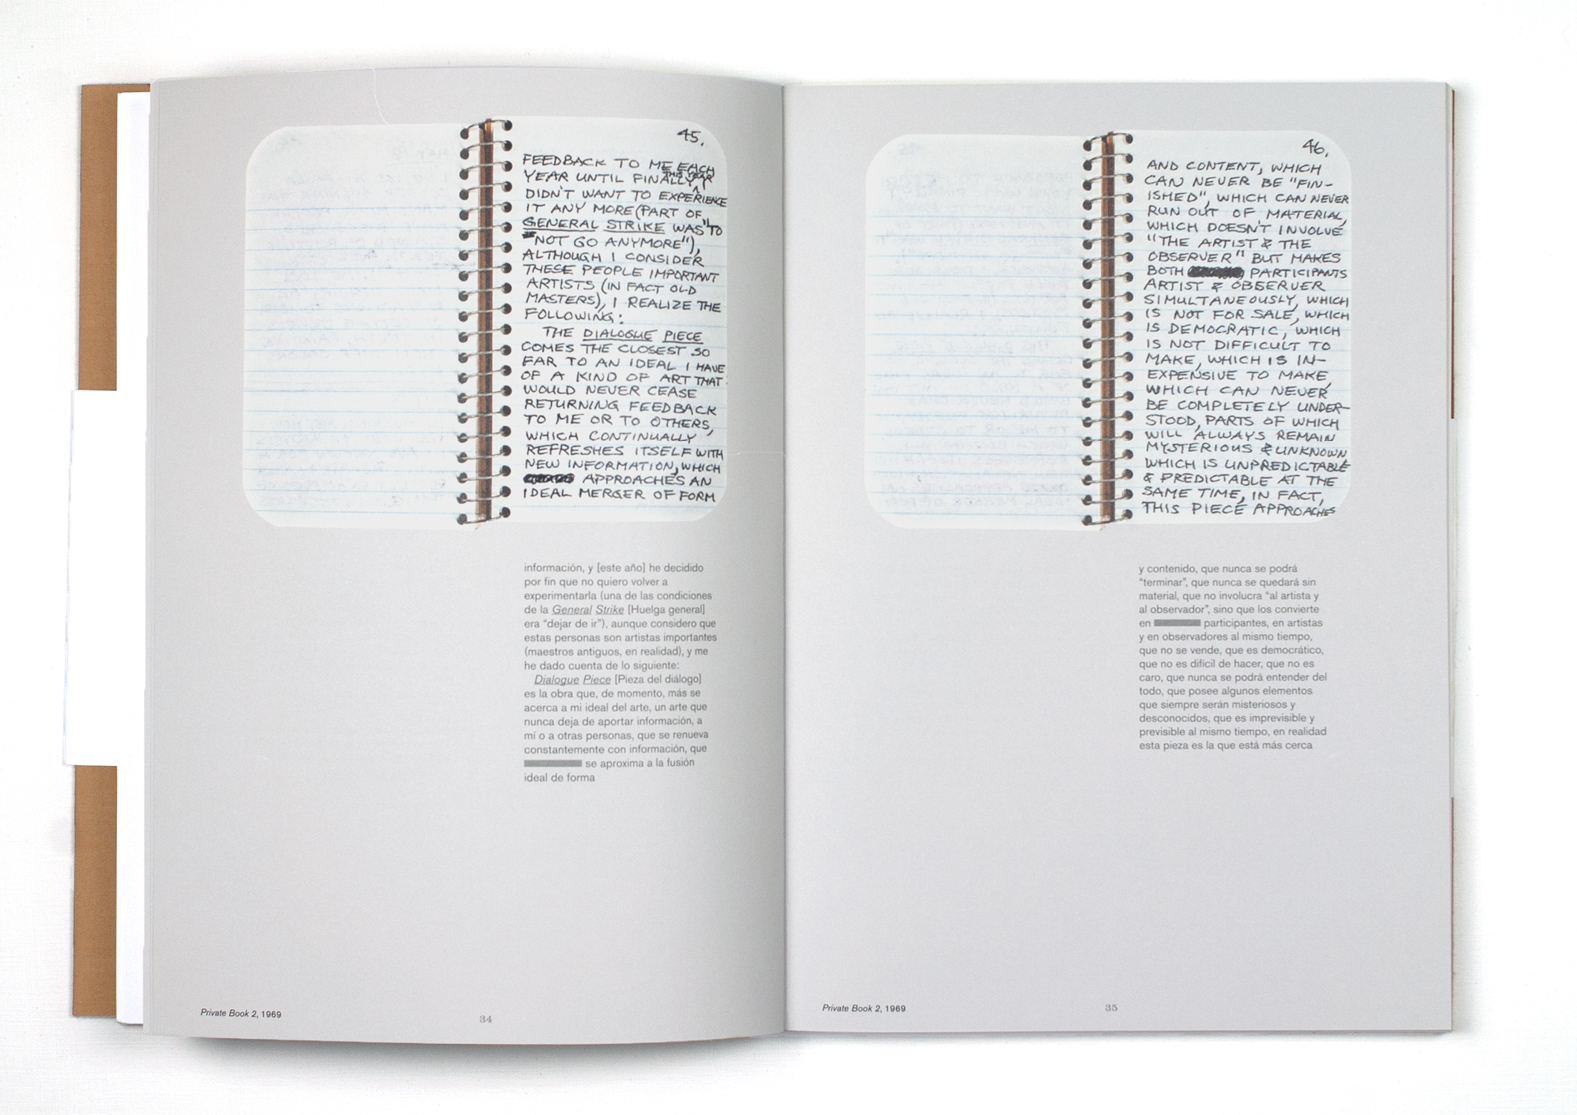 45.
FEEDBACK TO ME EACH
YEAR UNTIL FINALLY THIS YEAR I
DIDN'T WANT TO EXPERIENCE
IT ANY MORE (PART OF
GENERAL STRIKE WAS "TO
"NOT GO ANYMORE"),
ALTHOUGH I CONSIDER
THESE PEOPLE IMPORTANT
ARTISTS (IN FACT OLD
MASTERS), I REALIZE THE
FOLLOWING:
THE DIALOGUE PIECE
COMES THE CLOSEST SO
FAR TO AN IDEAL I HAVE
OF A KIND OF ART THAT
WOULD NEVER CEASE
RETURNING FEEDBACK
TO ME OR TO OTHERS,
WHICH CONTINUALLY
REFRESHES ITSELF WITH
NEW INFORMATION, WHICH
APPROACHES AN
IDEAL MERGER OF FORM
información, y [este año] he decidido
por fin que no quiero volver a
experimentarla (una de las condiciones
de la General Strike [Huelga general]
era "dejar de ir"), aunque considero que
estas personas son artistas importantes
(maestros antiguos, en realidad), y me
he dado cuenta de lo siguiente:
Dialogue Piece [Pieza del diálogo]
es la obra que, de momento, más se
acerca a mi ideal del arte, un arte que
nunca deja de aportar información, a
mí o a otras personas, que se renueva
constantemente con información, que
se aproxima a la fusión
ideal de forma
Private Book 2, 1969
34
46.
AND CONTENT, WHICH
CAN NEVER BE "FIN-
ISHED", WHICH CAN NEVER
RUN OUT OF MATERIAL,
WHICH DOESN'T INVOLVE
"THE ARTIST & THE
OBSERVER" BUT MAKES
BOTH PARTICIPANTS
ARTIST & OBSERVER
SIMULTANEOUSLY, WHICH
IS NOT FOR SALE, WHICH
IS DEMOCRATIC, WHICH
IS NOT DIFFICULT TO
MAKE, WHICH IS IN-
EXPENSIVE TO MAKE,
WHICH CAN NEVER
BE COMPLETELY UNDER-
STOOD, PARTS OF WHICH
WILL ALWAYS REMAIN
MYSTERIOUS & UNKNOWN
WHICH IS UNPREDICTABLE
& PREDICTABLE AT THE
SAME TIME, IN FACT,
THIS PIECE APPROACHES
y contenido, que nunca se podrá
"terminar", que nunca se quedará sin
material, que no involucra "al artista y
al observador", sino que los convierte
en participantes, en artistas
y en observadores al mismo tiempo,
que no se vende, que es democrático,
que no es difícil de hacer, que no es
caro, que nunca se podrá entender del
todo, que posee algunos elementos
que siempre serán misteriosos y
desconocidos, que es imprevisible y
previsible al mismo tiempo, en realidad
esta pieza es la que está más cerca
Private Book 2, 1969
35